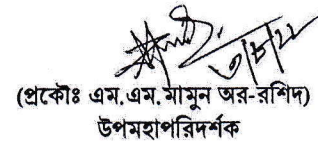 ৩/৮/২২
(প্রকৌঃ এম.এম.মামুন অর-রশিদ)
উপমহাপরিদর্শক